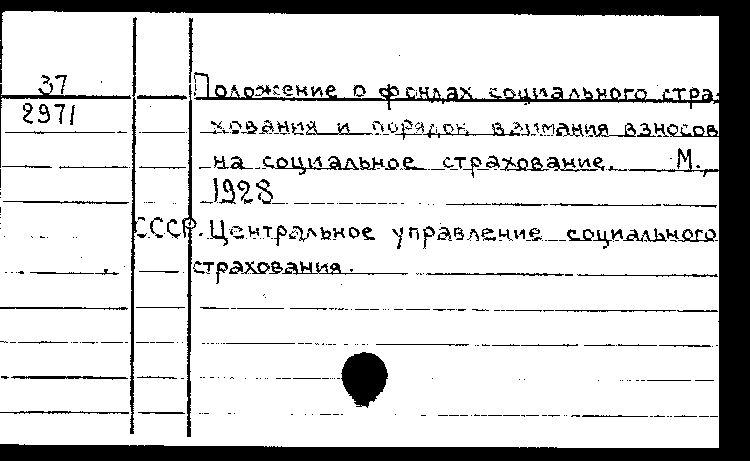 37
2971
Положение о фондах социального стра-
хования и порядок взимания взносов
на социальное страхование. М.,
1928
СССР. Центральное управление социального
страхования.